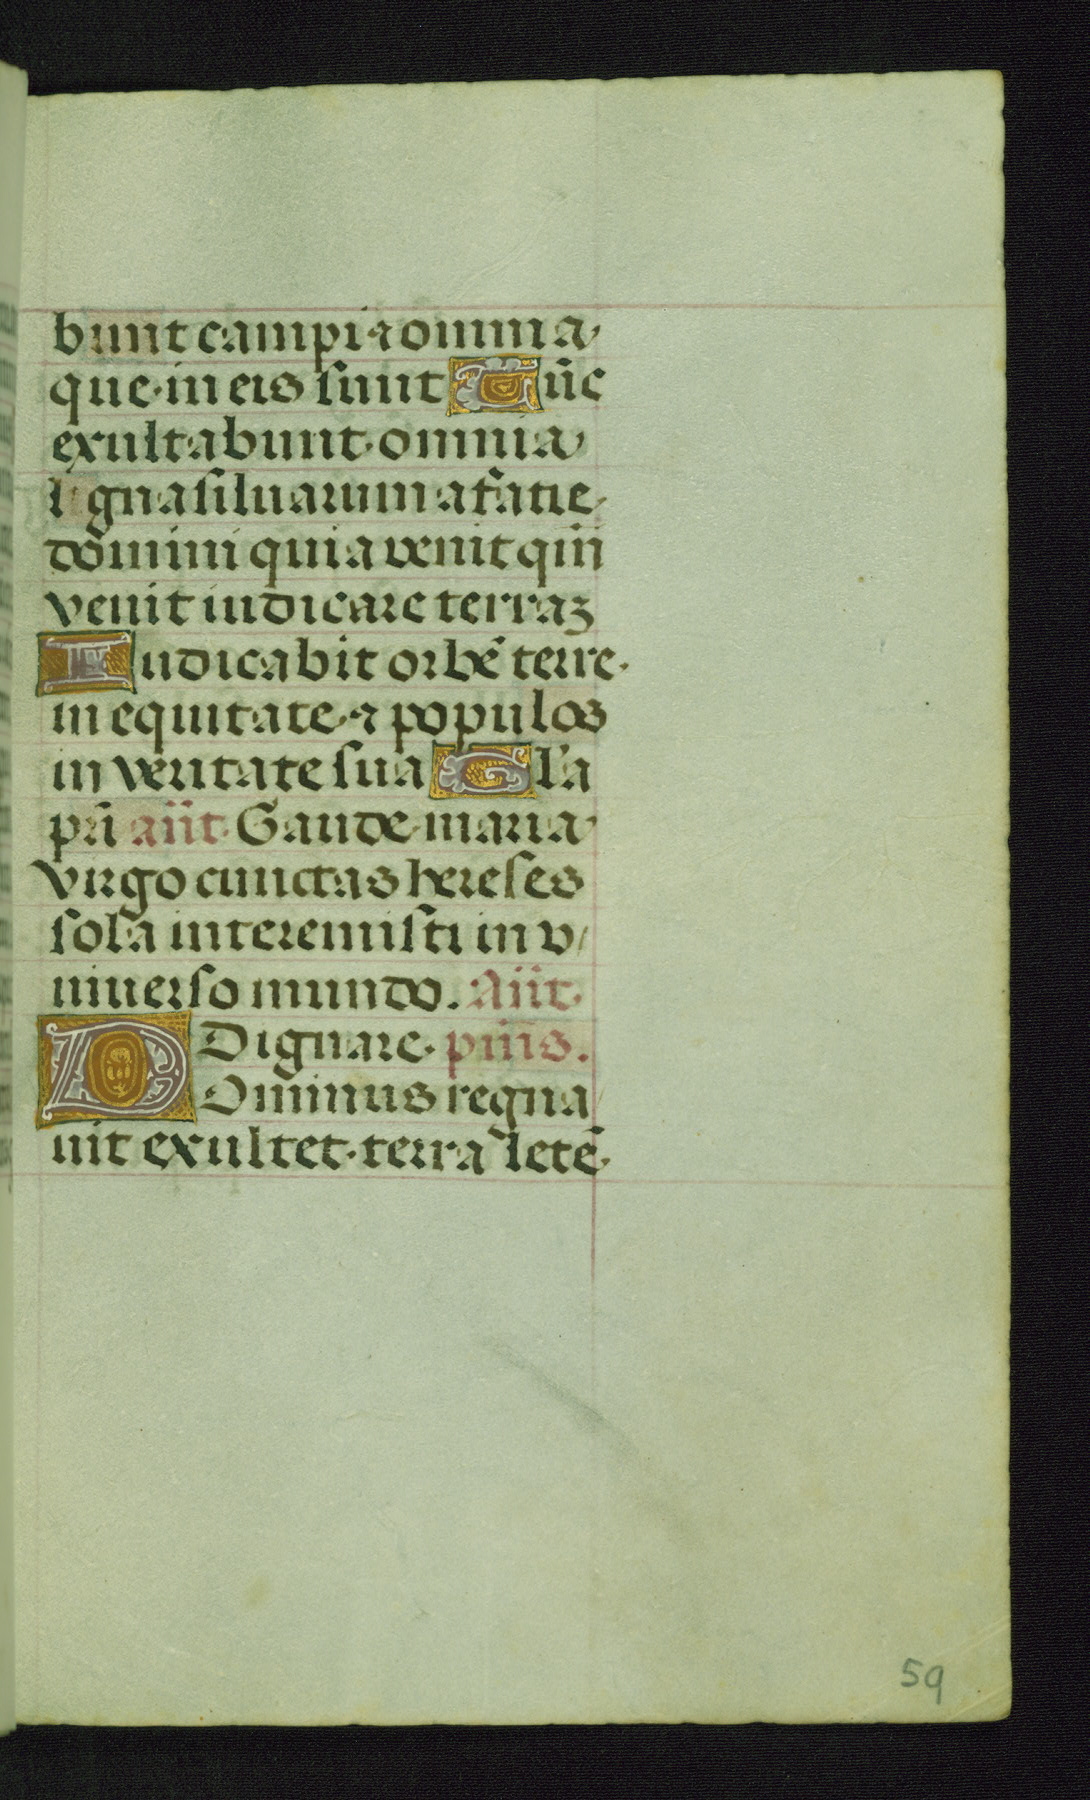 bunt campi ⁊ omnia
que in eis sunt Tūc
exultabunt omnia
ligna siluarum a facie
domini quia venit qm̄
venit iudicare terraꝫ
Iudicabit orbē terre
in equitate ⁊ populos
in veritate sua Gl̓a
pr̄i an̄t Gaude maria
virgo cunctas hereses
sola interemisti in v/
niuerso mundo. An̄t
Dignare. p̄us.
DOminus regna/
uit exultet terra letē
59